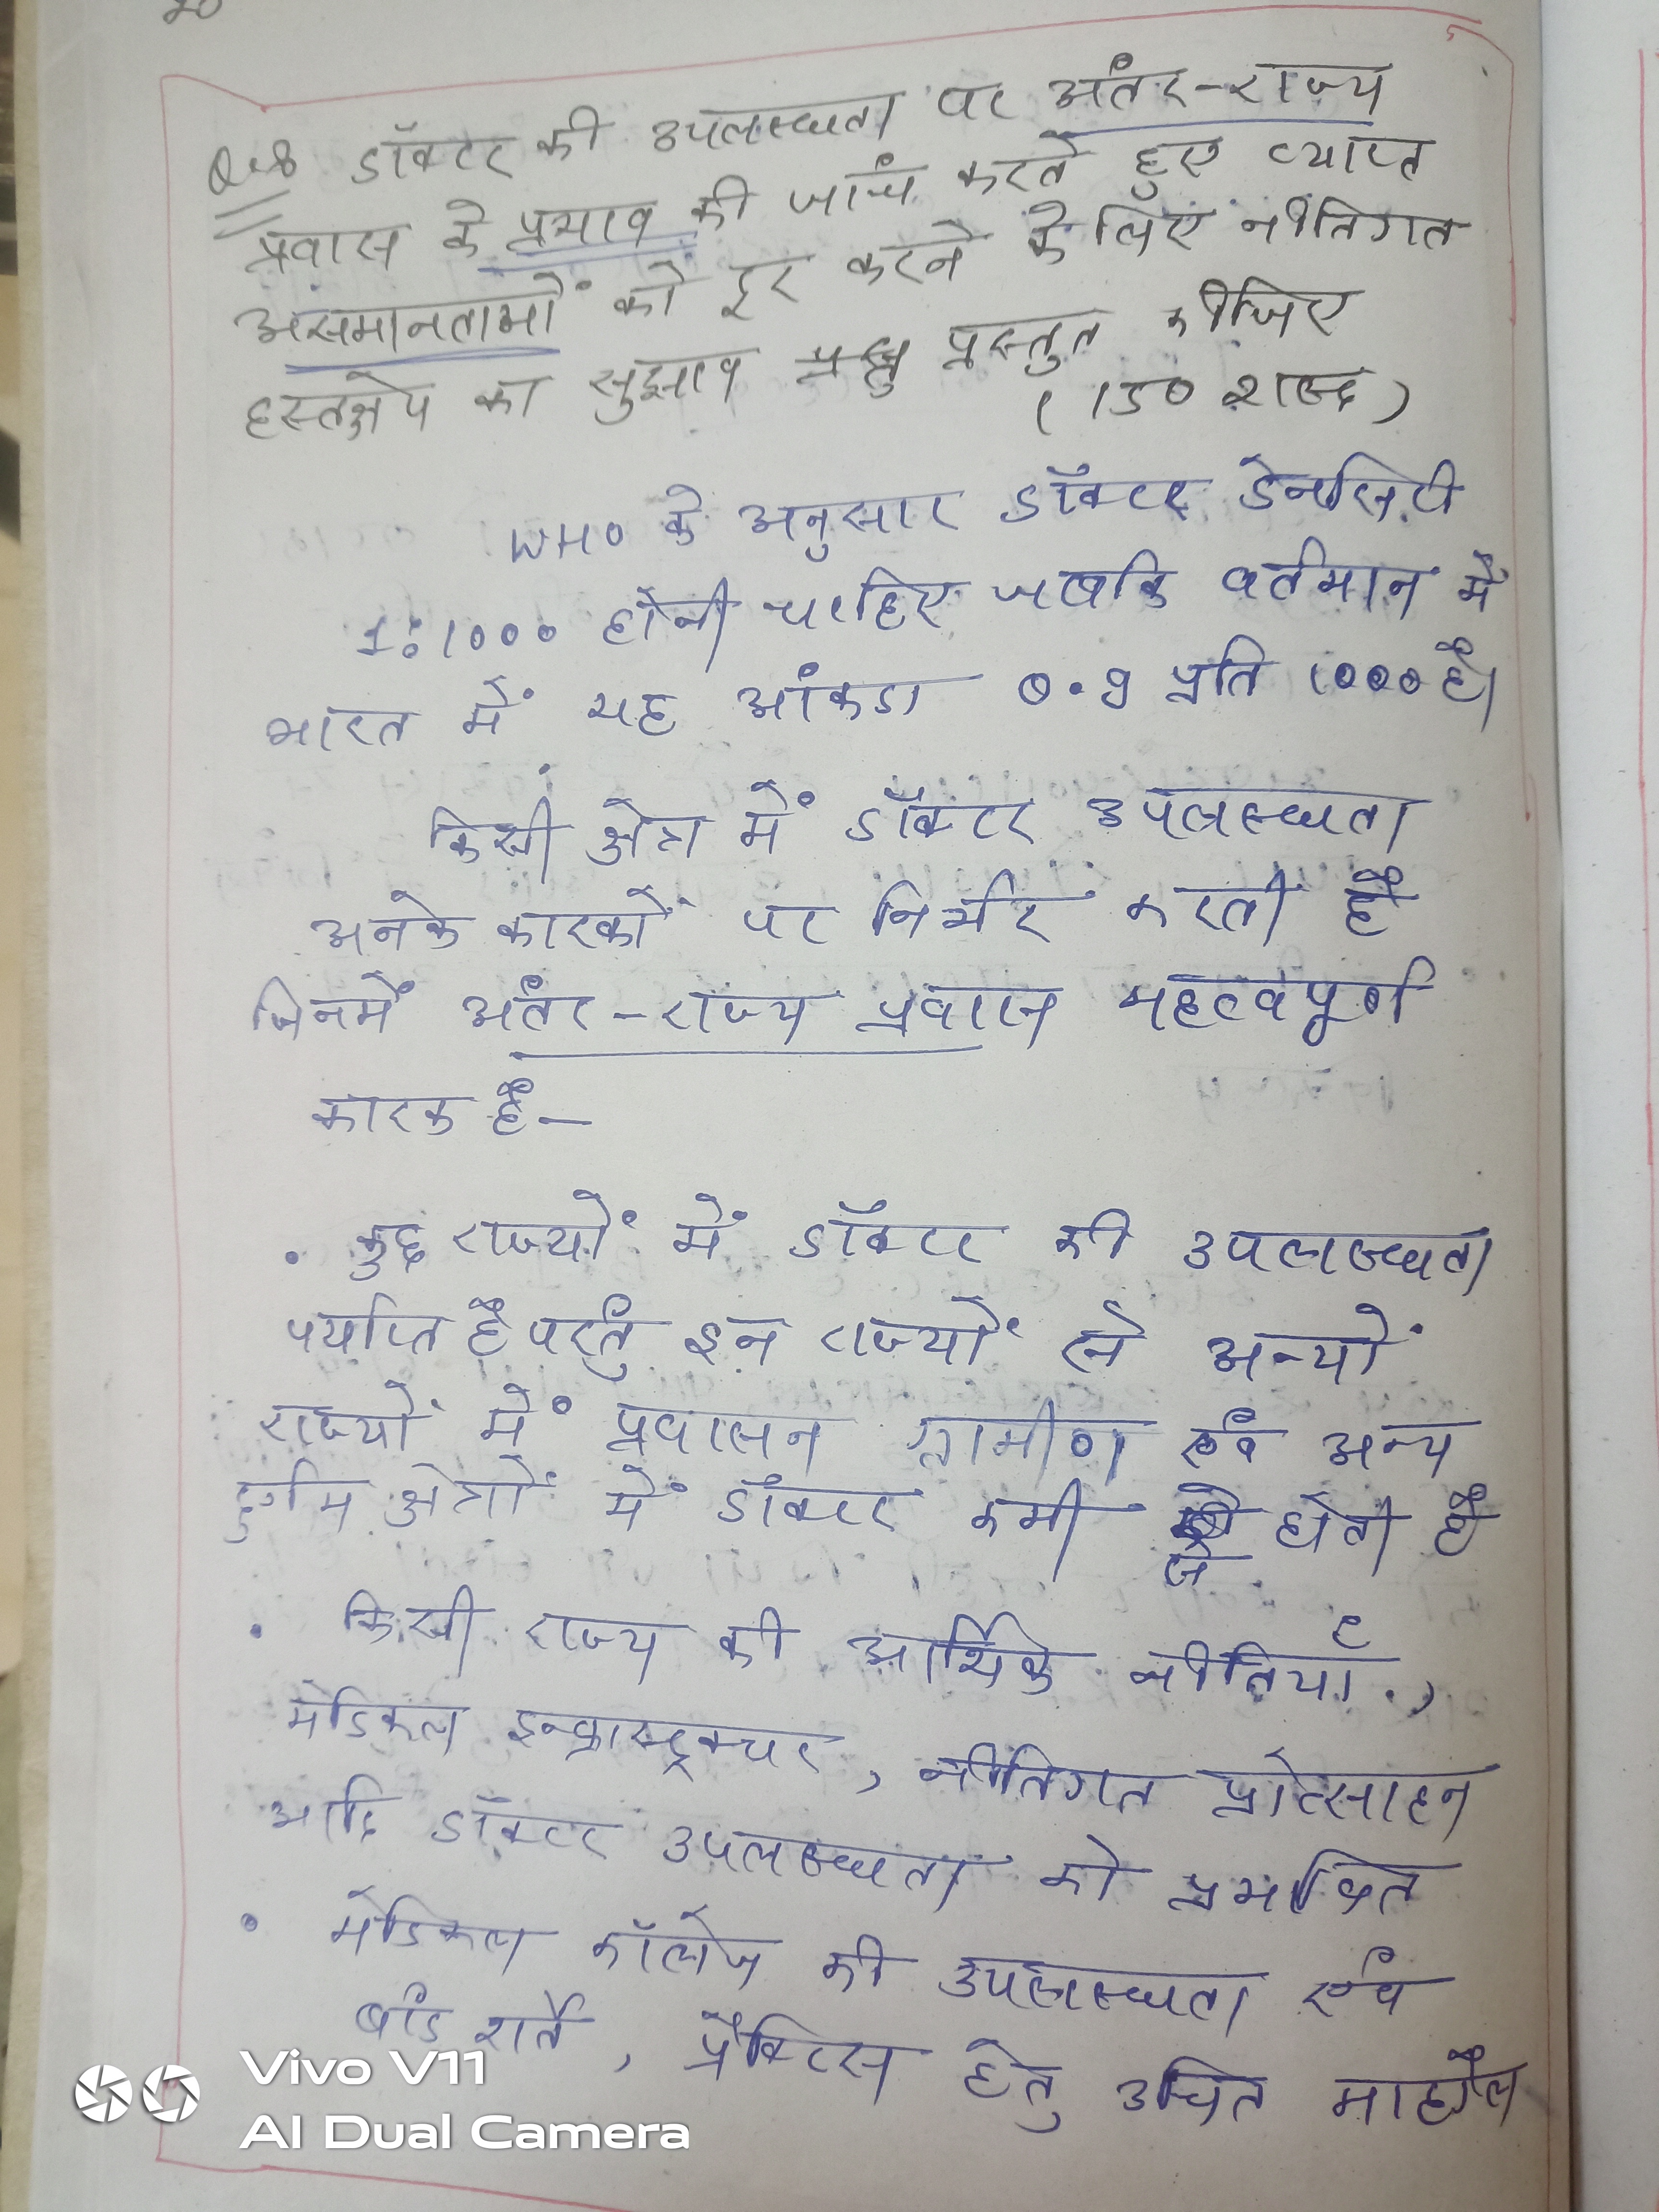 Q.8 डॉक्टर की उपलब्धता पर अंतर-राज्य
प्रवास के प्रभाव की जांच करते हुए व्याप्त
असमानताओं को दूर करने के लिए नीतिगत
हस्तक्षेप का सुझाव प्रस्तुत कीजिए
(150 शब्द)
WHO के अनुसार डॉक्टर डेनसिटी
1:1000 होनी चाहिए जबकि वर्तमान में
भारत में यह आंकडा 0.9 प्रति 1000 है।
किसी क्षेत्र में डॉक्टर उपलब्धता
अनेक कारकों पर निर्भर करती है
जिनमें अंतर-राज्य प्रवासन महत्वपूर्ण
कारक है-
• कुछ राज्यों में डॉक्टर की उपलब्धता
पर्याप्त है परंतु इन राज्यों से अन्यों
राज्यों में प्रवासन ग्रामीण एवं अन्य
दुर्गम क्षेत्रों में डॉक्टर कमी होती है
• किसी राज्य की आर्थिक नीतियाँ,
मेडिकल इन्फ्रास्ट्रक्चर, नीतिगत प्रोत्साहन
आदि डॉक्टर उपलब्धता को प्रभावित
• मेडिकल कॉलेज की उपलब्धता एवं
बांड शर्तें, प्रैक्टिस हेतु उचित माहौल
Vivo V11
AI Dual Camera